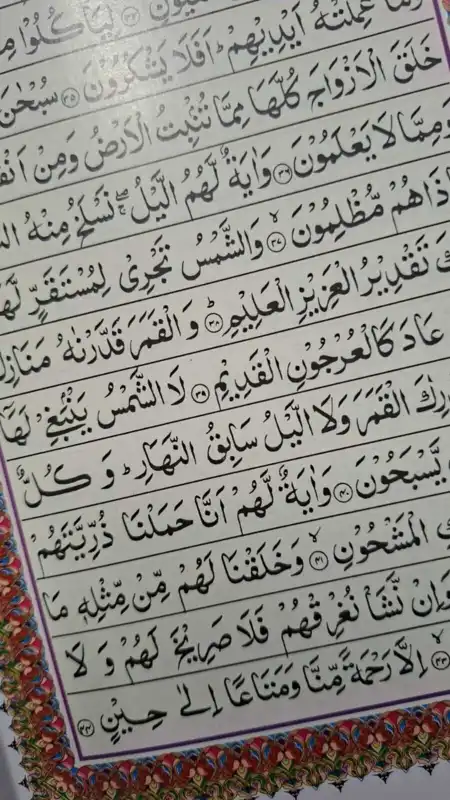 لِيَاْكُلُوْا
عَمِلَتْهُ اَيْدِيْهِمْ ؕ اَفَلَا يَشْكُرُوْنَ ﴿۳۵﴾ سُبْحٰنَ
خَلَقَ الْاَزْوَاجَ كُلَّهَا مِمَّا تُنْۢبِتُ الْاَرْضُ وَمِنْ
وَمِمَّا لَا يَعْلَمُوْنَ ﴿۳۶﴾ وَاٰيَةٌ لَّهُمُ الَّيْلُ ۖۚ نَسْلَخُ مِنْهُ
مُّظْلِمُوْنَ ﴿۳۷﴾ وَالشَّمْسُ تَجْرِيْ لِمُسْتَقَرٍّ
تَقْدِيْرُ الْعَزِيْزِ الْعَلِيْمِ ﴿۳۸﴾ وَالْقَمَرَ قَدَّرْنٰهُ
عَادَ كَالْعُرْجُوْنِ الْقَدِيْمِ ﴿۳۹﴾ لَا الشَّمْسُ يَنْۢبَغِيْ لَهَا
الْقَمَرَ وَلَا الَّيْلُ سَابِقُ النَّهَارِ ؕ وَ كُلٌّ
يَّسْبَحُوْنَ ﴿۴۰﴾ وَاٰيَةٌ لَّهُمْ اَنَّا حَمَلْنَا ذُرِّيَّتَهُمْ
الْمَشْحُوْنِ ﴿۴۱﴾ وَخَلَقْنَا لَهُمْ مِّنْ مِّثْلِهٖ مَا
وَاِنْ نَّشَاْ نُغْرِقْهُمْ فَلَا صَرِيْخَ لَهُمْ وَ لَا
﴿۴۳﴾ اِلَّا رَحْمَةً مِّنَّا وَمَتَاعًا اِلٰى حِيْنٍ ﴿۴۴﴾